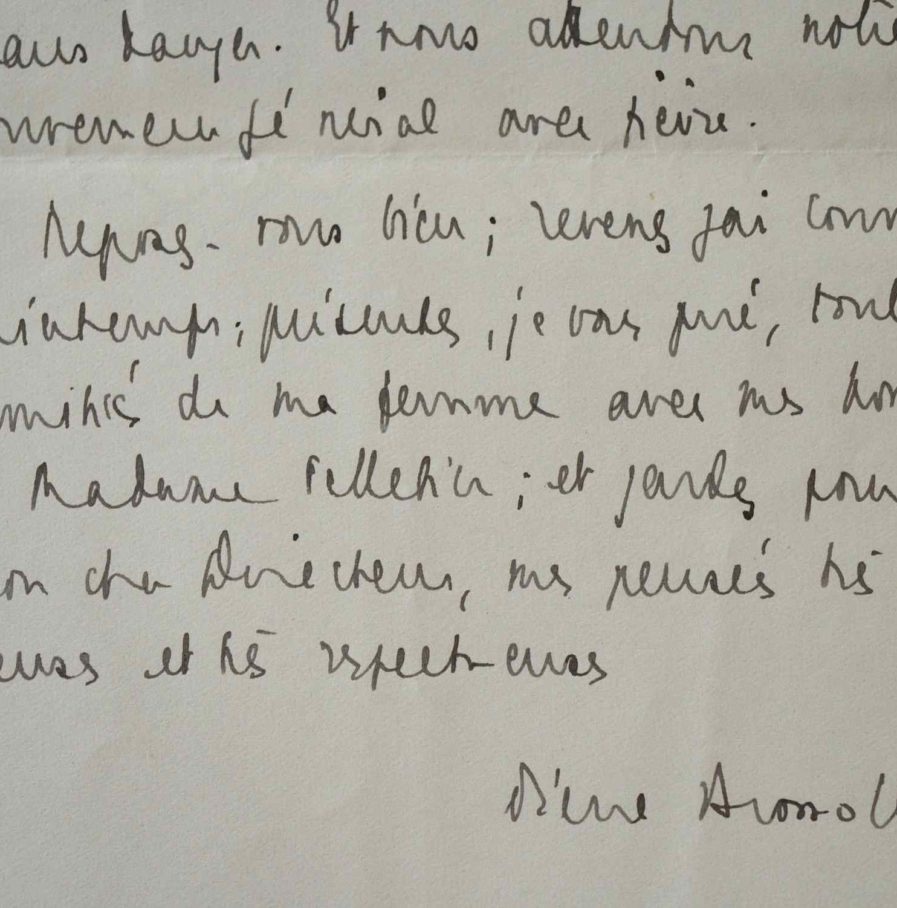 sans danger. Et nous attendons notre
gouvernement général avec fièvre.
Reposez-vous bien ; revenez gai comm
rintemps ; présentez, je vous prie, tout
amitiés de ma femme avec mes hom
Madame Pelletier ; et gardez pour
on cher Directeur, mes pensées très
euses et très respectueuses
Pierre